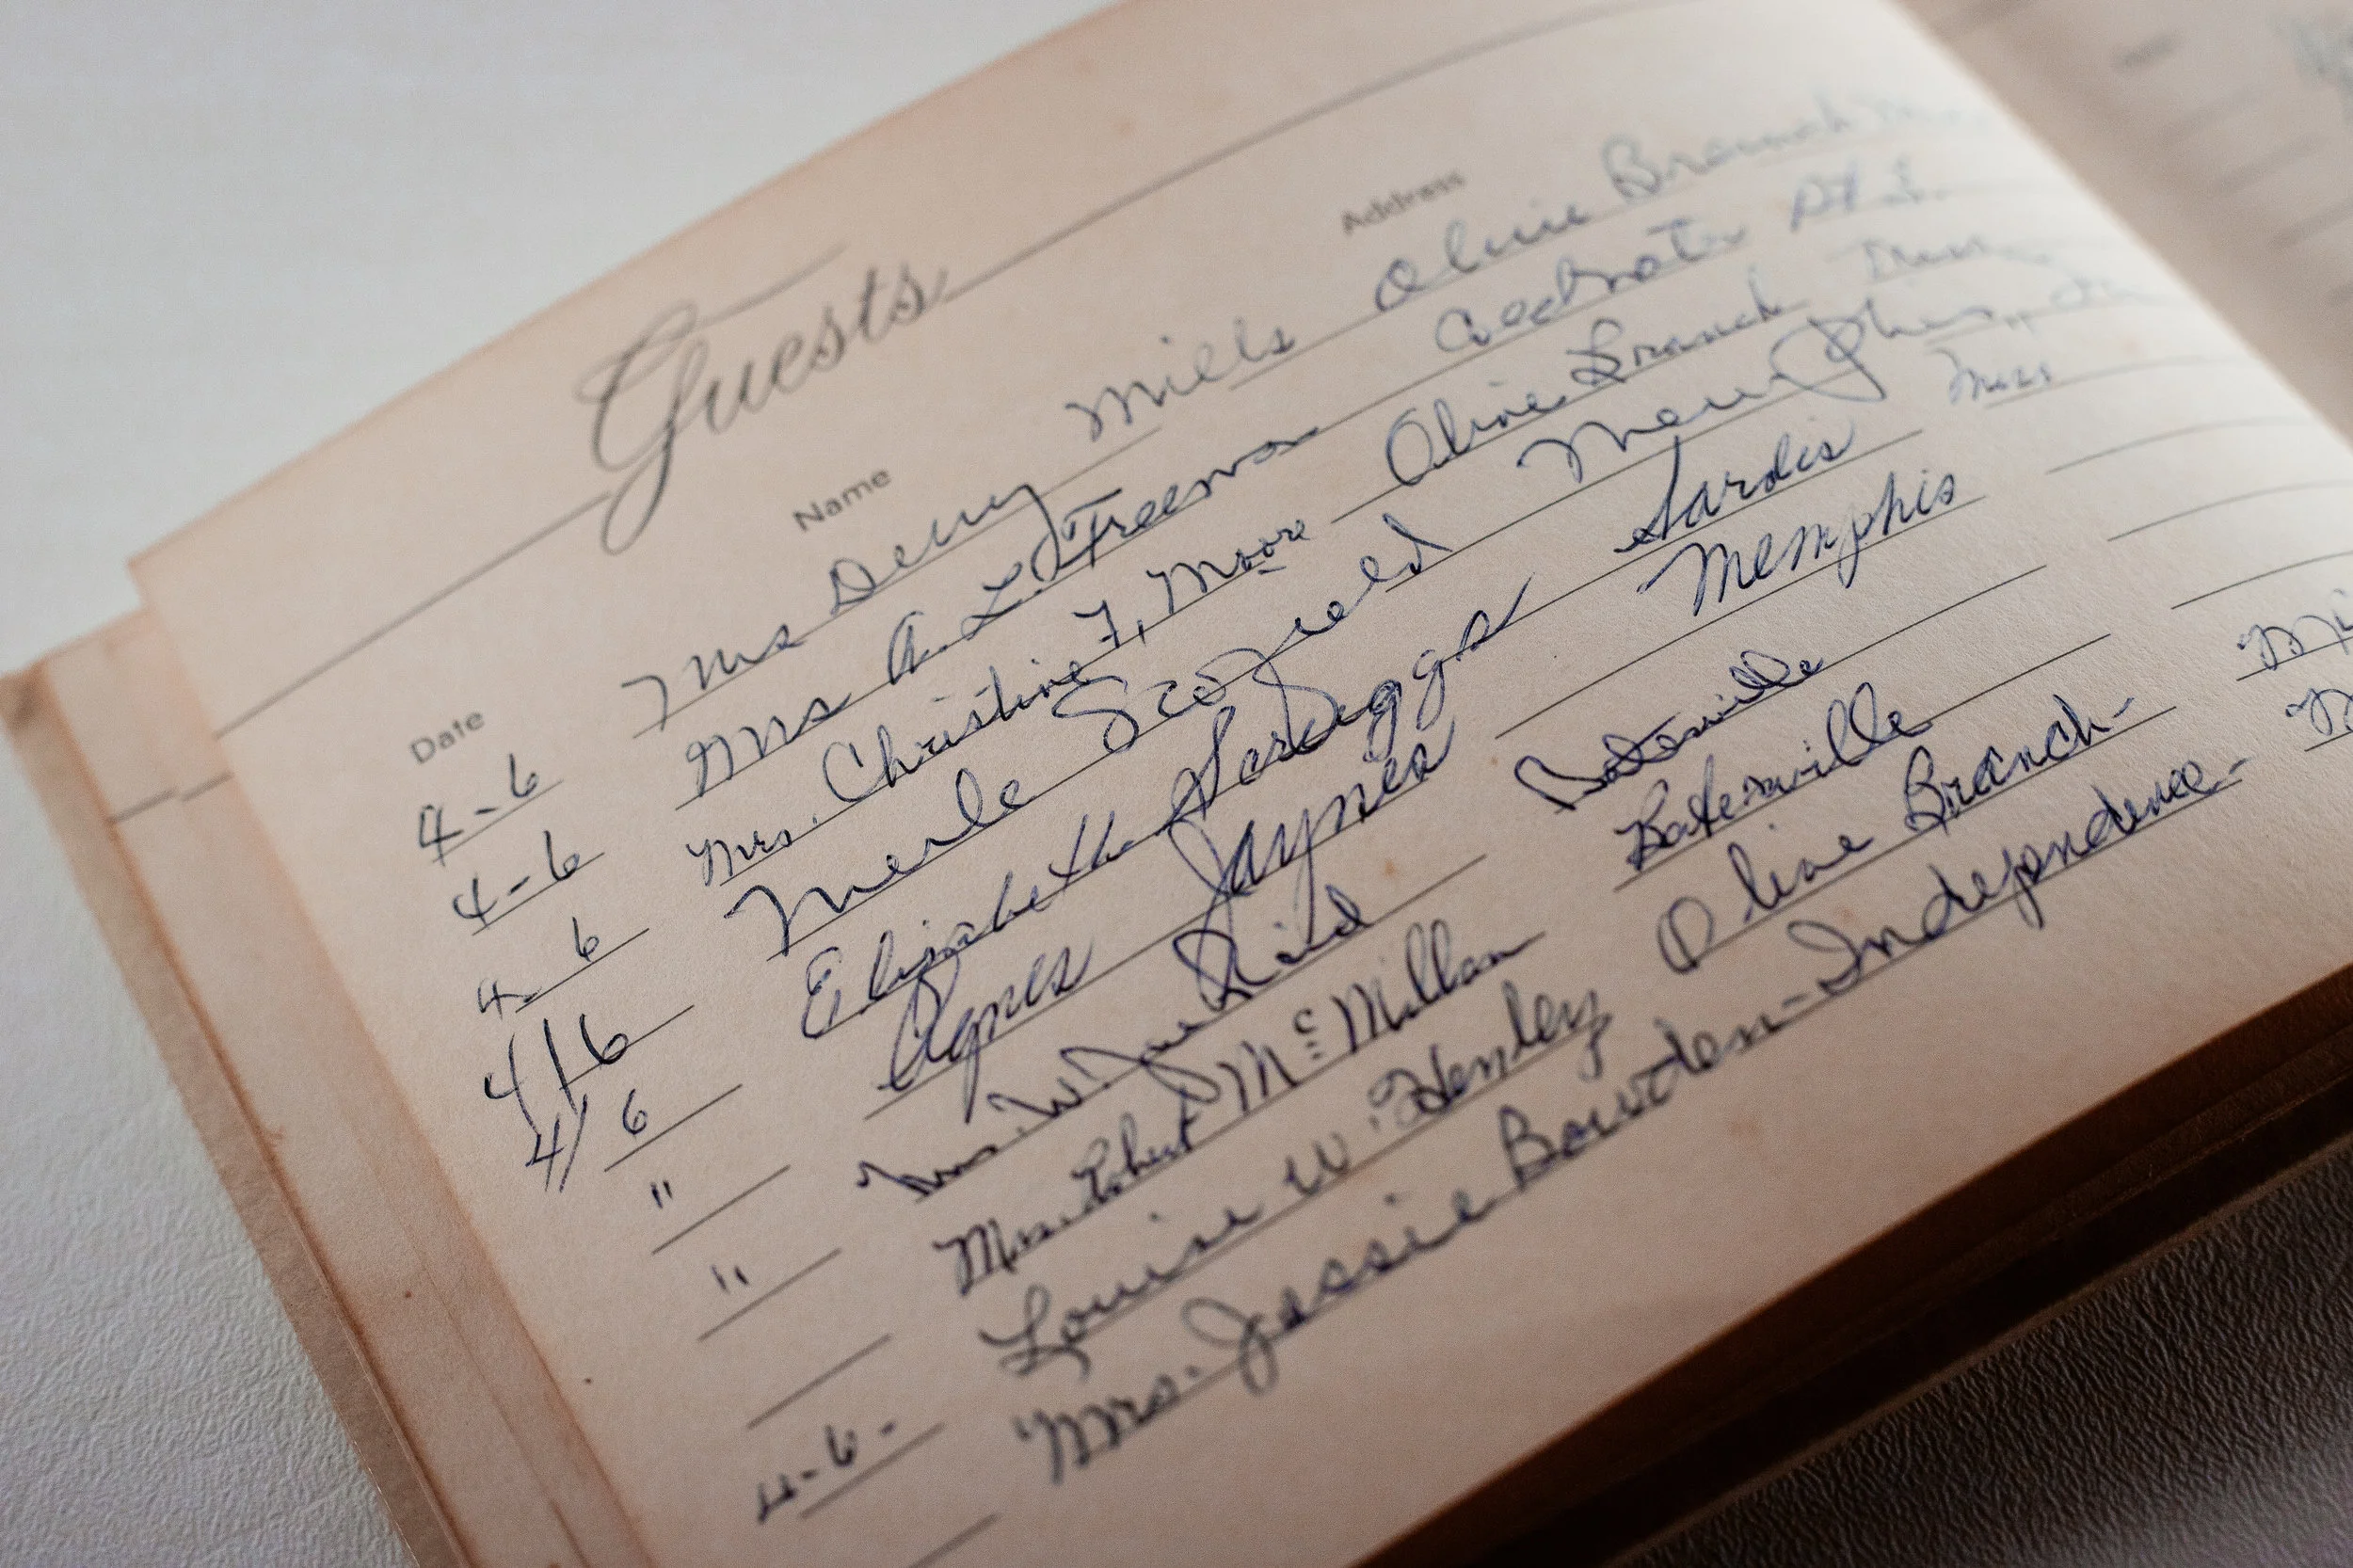 Guests
Date Name Address
4-6 Mrs Derry Mills Olive Branch
4-6 Mrs A. L. Freeman Coldwater Rt. 1
4-6 Mrs. Christine F. Moore Olive Branch Miss
4/6 Merle Scofield Memphis
4/6 Elizabeth Scruggs Sardis Miss
" Agnes Jaynes Memphis
" Mrs. W. Batesville
Mrs. Robert McMillan Batesville
4-6- Louise W. Henley Olive Branch-
Mrs. Jessie Bowden - Independence -